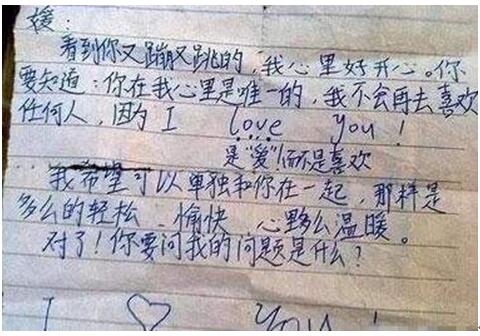 媛：
看到你又蹦又跳的，我心里好开心。你
要知道：你在我心里是唯一的，我不会再去喜欢
任何人，因为 I love you！
是“爱”而不是喜欢
我希望可以单独和你在一起，那样是
多么的轻松、愉快、心多么温暖。
对了！你要问我的问题是什么？
I ♡ You！